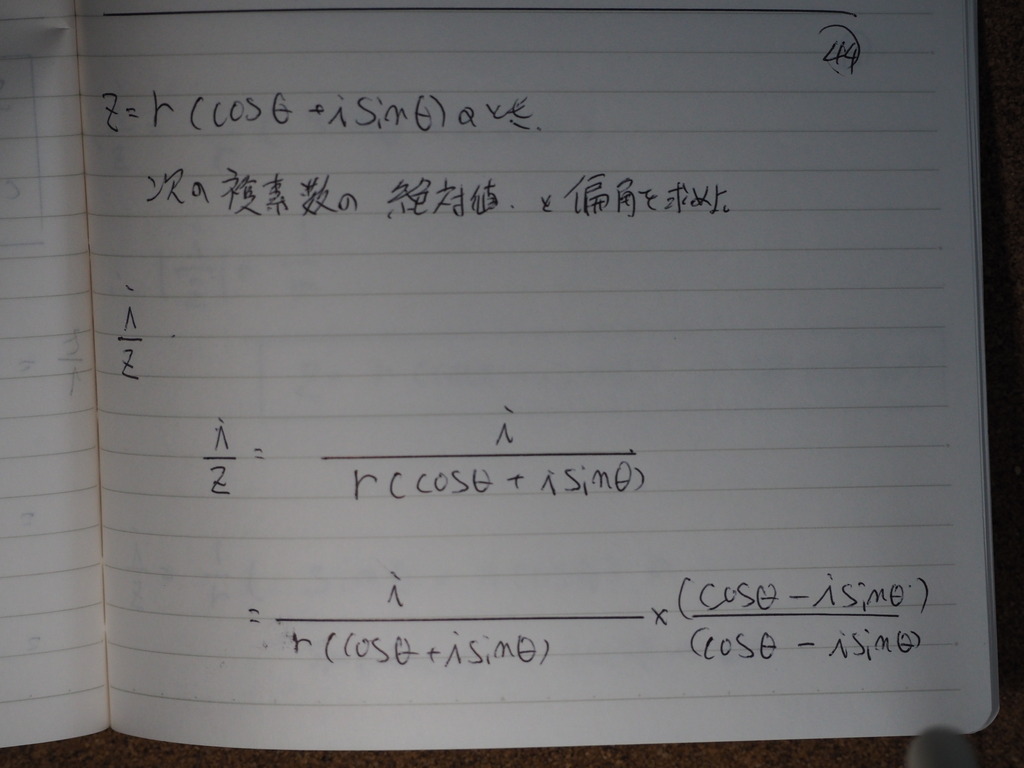 44
z=r(cosθ+isinθ)のとき、
次の複素数の絶対値と偏角を求めよ。
i/z
i/z = i/r(cosθ+isinθ)
= i/r(cosθ+isinθ) × (cosθ-isinθ)/(cosθ-isinθ)